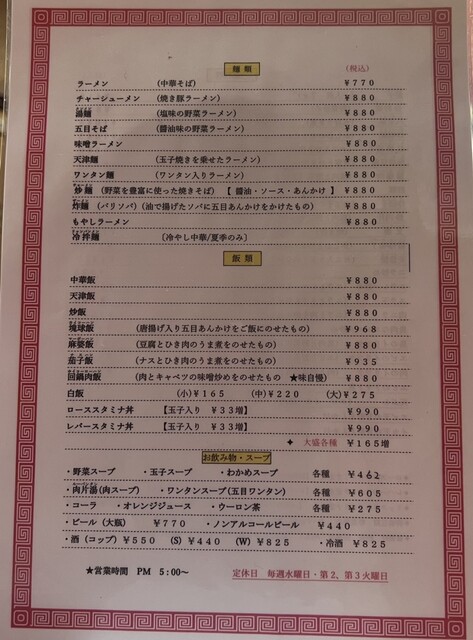 麺類 (税込)
ラーメン (中華そば) ¥770
チャーシューメン (焼き豚ラーメン) ¥880
湯麺 (塩味の野菜ラーメン) ¥880
五目そば (醤油味の野菜ラーメン) ¥880
味噌ラーメン ¥880
天津麺 (玉子焼きを乗せたラーメン) ¥880
ワンタン麺 (ワンタン入りラーメン) ¥880
炒麺 (野菜を豊富に使った焼きそば) 【 醤油・ソース・あんかけ 】 ¥880
炸麺 (バリソバ) (油で揚げたソバに五目あんかけをかけたもの) ¥880
もやしラーメン ¥880
冷拌麺 〔冷やし中華/夏季のみ〕
飯類
中華飯 ¥880
天津飯 ¥880
炒飯 ¥880
琉球飯 (唐揚げ入り五目あんかけをご飯にのせたもの) ¥968
麻婆飯 (豆腐とひき肉のうま煮をのせたもの) ¥880
茄子飯 (ナスとひき肉のうま煮をのせたもの) ¥935
回鍋肉飯 (肉とキャベツの味噌炒めをのせたもの ★味自慢) ¥880
白飯 (小)¥165 (中)¥220 (大)¥275
ローススタミナ丼 【玉子入り ¥33増】 ¥990
レバースタミナ丼 【玉子入り ¥33増】 ¥990
✦ 大盛各種 ¥165増
お飲み物・スープ
・野菜スープ ・玉子スープ ・わかめスープ 各種 ¥462
・肉片湯(肉スープ) ・ワンタンスープ(五目ワンタン) 各種 ¥605
・コーラ ・オレンジジュース ・ウーロン茶 各種 ¥275
・ビール (大瓶) ¥770 ・ノンアルコールビール ¥440
・酒 (コップ) ¥550 (S) ¥440 (W) ¥825 ・冷酒 ¥825
★営業時間 PM 5:00〜 定休日 毎週水曜日・第2、第3火曜日